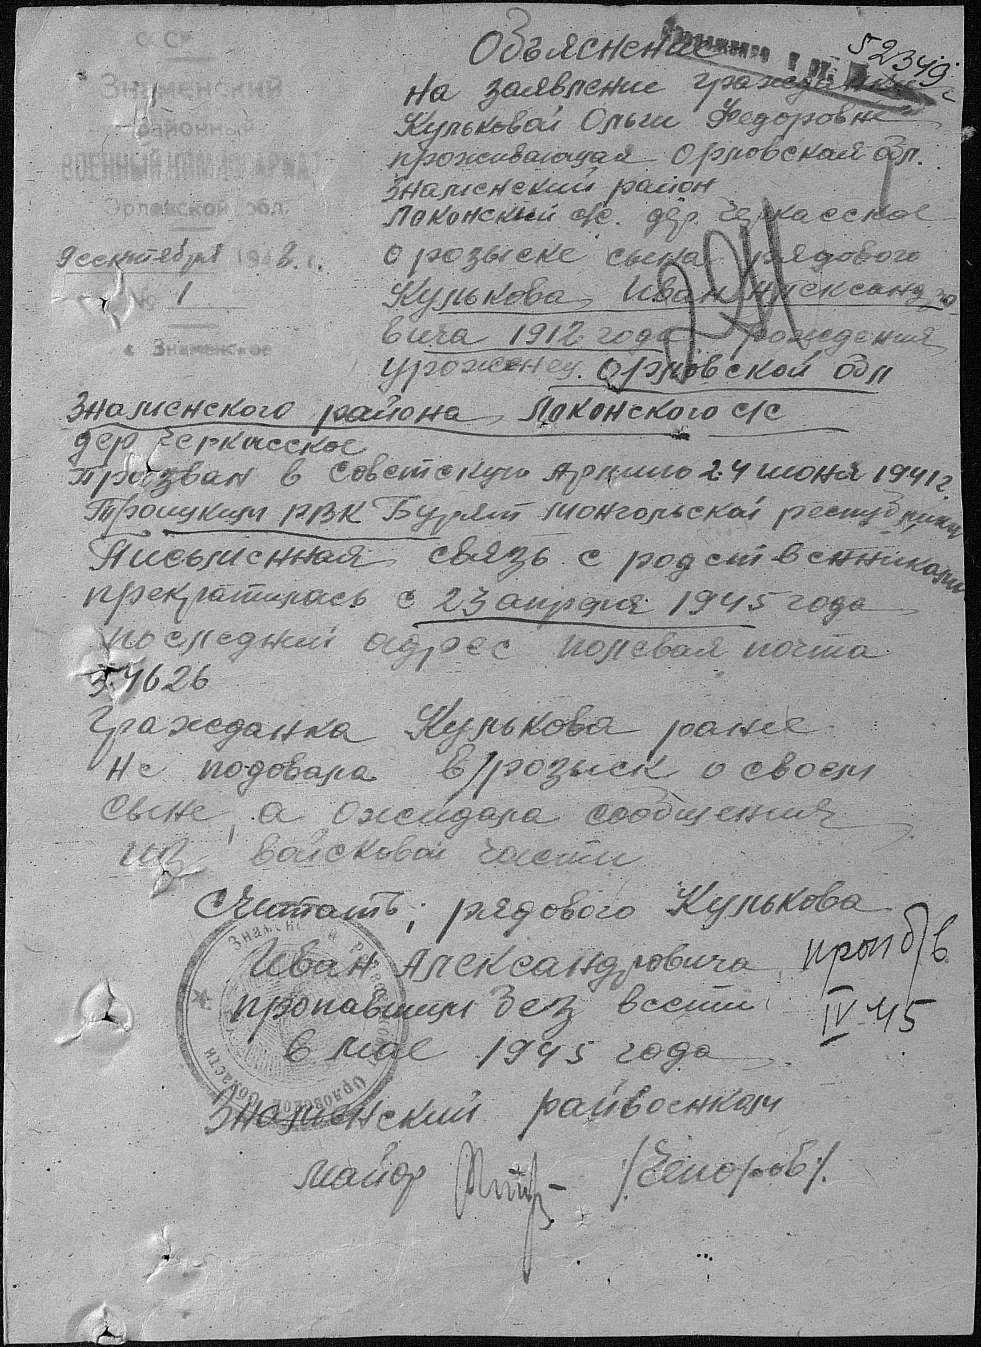 СССР
Знаменский
районный
ВОЕННЫЙ КОМИССАРИАТ
Орловской обл.
9 сентября 1948 г.
№ 1
с. Знаменское
52349с
Объяснение
на заявление гражданки
Кульковой Ольги Федоровне
проживающая Орловской обл.
Знаменский район
Локонский с/с. дер. Черкасское
о розыске сына рядового
Кулькова Иван Александро
вича 1912 года рождения
уроженец Орловской обл
Знаменского района Локонского с/с
дер Черкасское
Призван в Советскую Армию 24 июня 1941 г.
Троицким РВК Бурят Монгольской республики
Письменная связь с родственниками
прекратилась с 23 апреля 1945 года
последний адрес полевая почта
54626
Гражданка Кулькова ранее
не подовала в/розыск о своем
сыне, а ожидала сообщения
из войсковой части
Считать; рядового Кулькова
Иван Александровича
пропавшим без вести
в мае 1945 года
проп б/в
IV-45
Знаменский райвоенком
майор /Чепоров/.